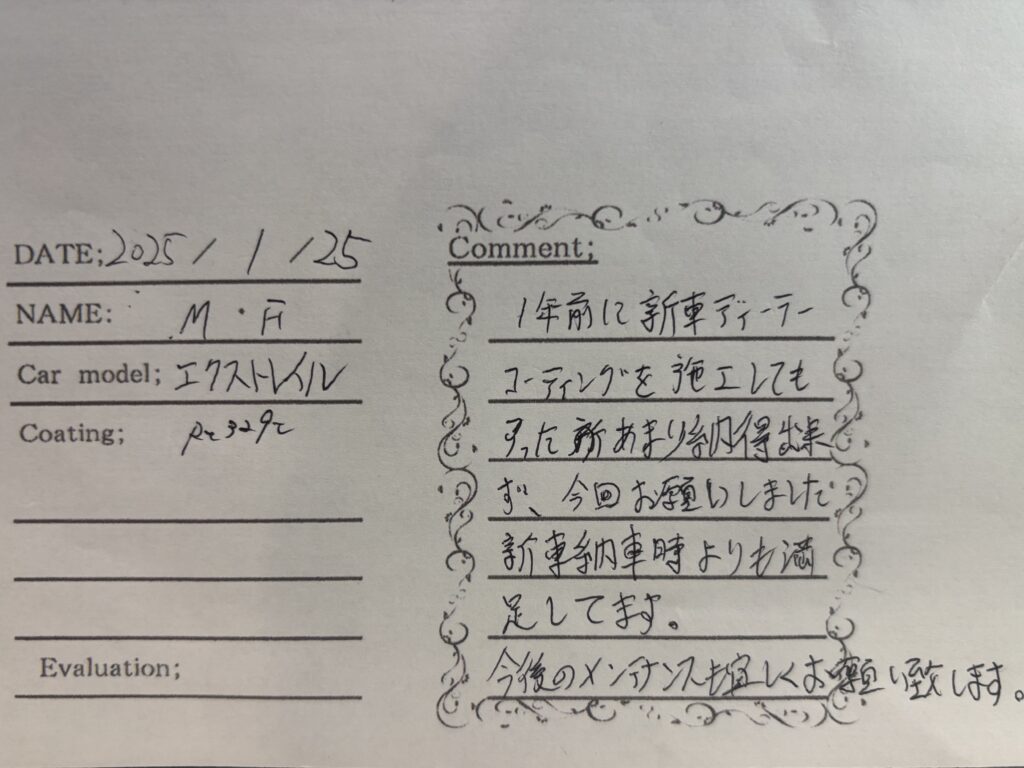 DATE; 2025 / 1 / 25
NAME: M・H
Car model; エクストレイル
Coating;
Evaluation;
Comment;
1年前に新車ディーラー
コーティングを施工しても
らった所あまり納得出来
ず、今回お願いしました
新車納車時よりも満
足してます。
今後のメンテナンスも宜しくお願い致します。